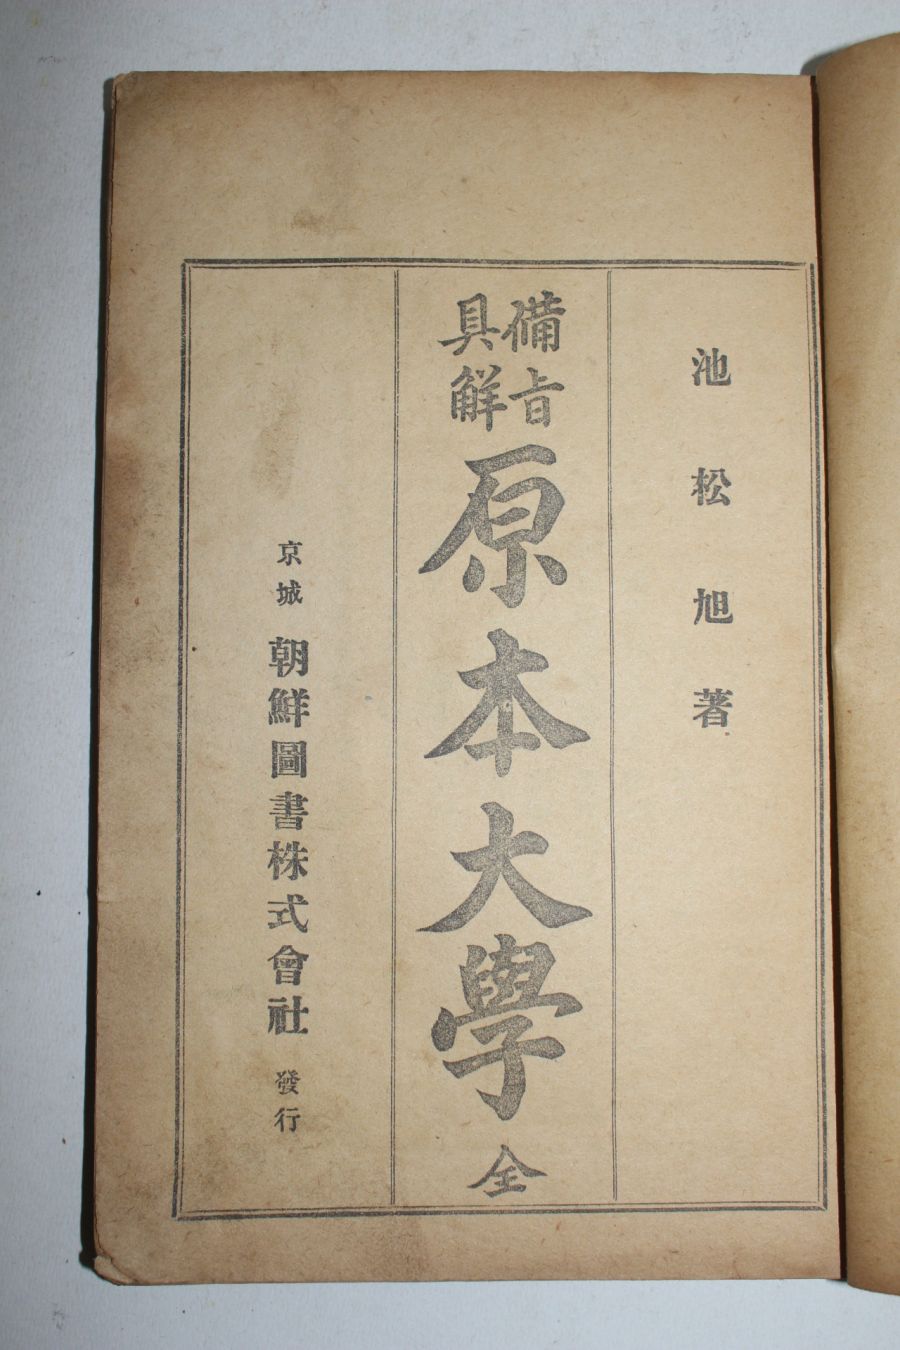 池松旭著
備㫖
具觧
原本大學全
京城 朝鮮圖書株式會社 發行